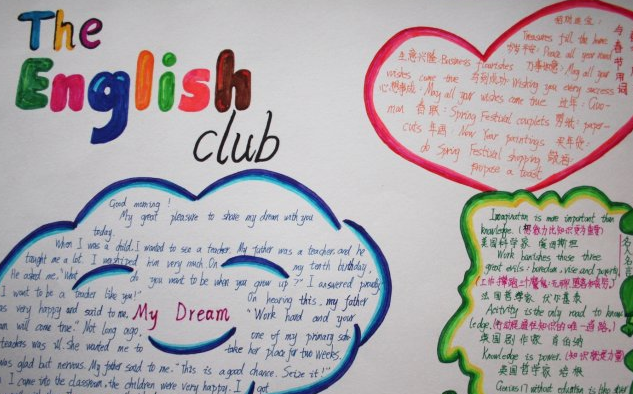 The
English
club
Good morning!
My great pleasure to share my dream with you
today.
When I was a child. I wanted to be a teacher. My father was a teacher. and he
taught me a lot. I worshiped him very much. On my tenth birthday,
He asked me. "What do you want to be when you grow up?" I answered proudly
I want to be a teacher like you!" On hearing this, my father
was very happy and said to me. "Work hard and your
will come true." Not long ago, one of my primary
teachers was ill. She wanted me to take her place for two weeks.
was glad but nervous. My father said to me. "This is a good chance. Seize it!"
I came into the classroom, the children were very happy. I got
My Dream
招财进宝:
Treasures fill the home
生意兴隆: Business flourishes
岁岁平安: Peace all year round
万事如意: May all your
wishes come true
马到成功: Wishing you every success
心想事成: May all your wishes come true
过年:
春联: Spring Festival couplets
剪纸: paper-
cuts 年画: New Year paintings 买年货:
do Spring Festival shopping 敬酒:
propose a toast
春节用词
Imagination is more important than
knowledge. (想象力比知识更为重要)
美国科学家 爱因斯坦
Work banishes those three
great evils: boredom, vice and poverty.
法国哲学家 伏尔泰
Activity is the only road to know
ledge. (行动是通往知识的唯一道路。)
英国剧作家 肖伯纳
Knowledge is power. (知识就是力量
英国哲学家 培根
Genius without education is like silver
名人名言